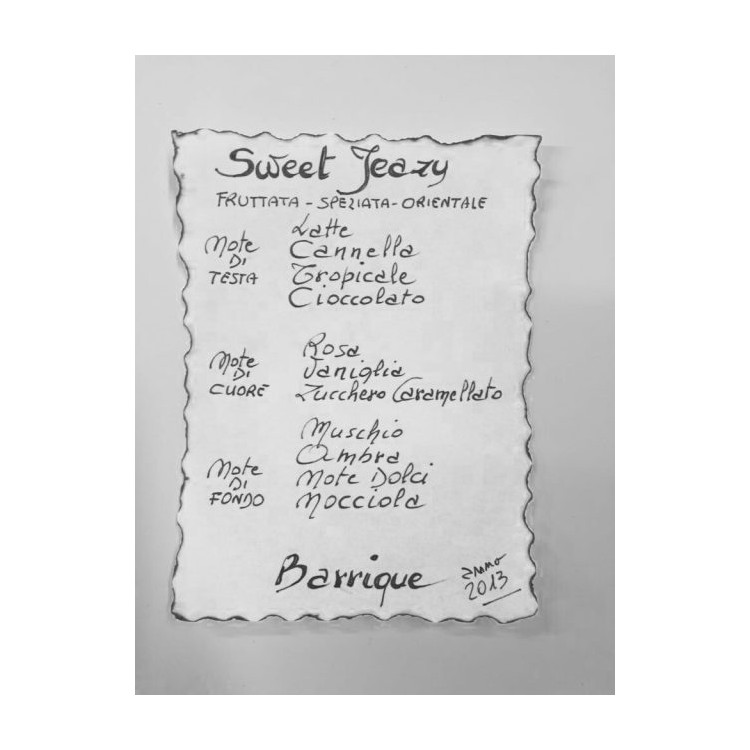 Sweet Jeazy
FRUTTATA - SPEZIATA - ORIENTALE
Note
DI
TESTA
Latte
Cannella
Tropicale
Cioccolato
Note
DI
CUORE
Rosa
Vaniglia
Zucchero Caramellato
Note
DI
FONDO
Muschio
Ambra
Note Dolci
Nocciola
Barrique
anno
2013